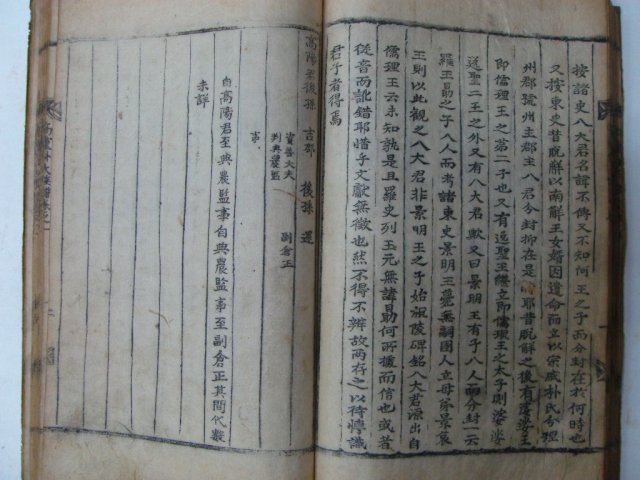 按諸史八大君名諱不傳又不知何王之子而分封在於何時也
又按東史昔脫解以南解王女婿因遺命而立以宗戚朴氏分理
州郡號州主郡主八君分封抑在是時耶昔脫解之後有婆娑王
即儒理王之第二子也又有逸聖王継立即儒理王之太子則婆娑
逸聖二王之外又有八大君歟又曰景明王有子八人而分封一云
羅王昜之子八人而考諸東史景明王薨無嗣國人立母弟景哀
王則以此觀之八大君非景明王之子始祖陵碑銘八大君源出自
儒理王云未知孰是且羅史列王元無諱昜何所據而信也或者
從音而訛錯耶惜乎文獻無徵也然不得不辨故兩存之以待博識
君子者得焉
高陽君後孫 吉郡 後孫 選
資善大夫
判典農監
事
副倉正
自高陽君至典農監事自典農監事至副倉正其間代數
未詳